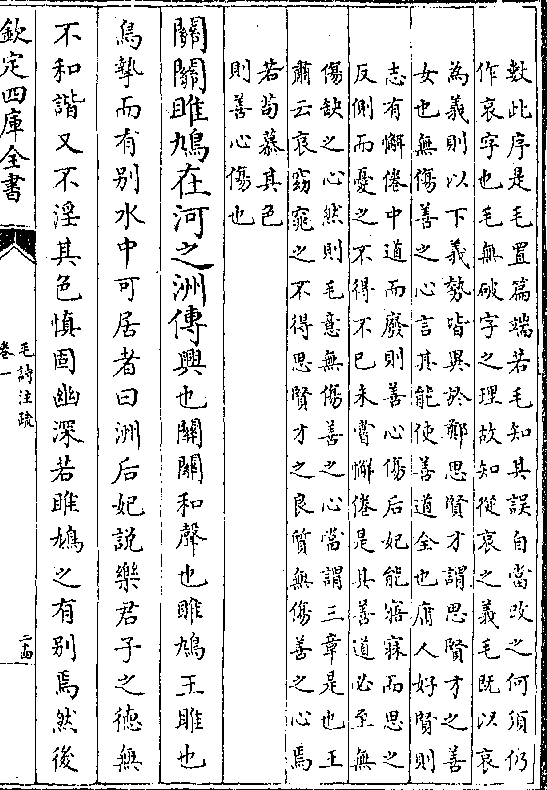 數此序是毛置篇端若毛知其誤自當改之何須仍
作哀字也毛無破字之理故知從哀之義毛既以哀
為義則以下義勢皆異於鄭思賢才謂思賢才之善
女也無傷善之心言其能使善道全也庸人好賢則
志有懈倦中道而廢則善心傷后妃能寤寐而思之
反側而憂之不得不已未嘗懈倦是其善道必至無
傷缺之心然則毛意無傷善之心當謂三章是也王
肅云哀窈窕之不得思賢才之良質無傷善之心焉
若苟慕其色
則善心傷也
關關雎鳩在河之洲傳興也關關和聲也雎鳩王雎也
鳥摯而有别水中可居者曰洲后妃說樂君子之德無
不和諧又不淫其色慎固幽深若雎鳩之有别焉然後
欽定四庫全書
毛詩注疏
卷一
二十四